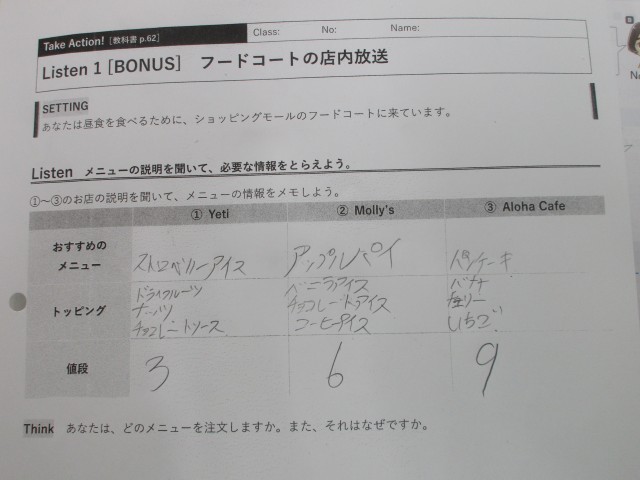 Take Action! [教科書 p.62]
Class: No: Name:
Listen 1 [BONUS] フードコートの店内放送
SETTING
あなたは昼食を食べるために、ショッピングモールのフードコートに来ています。
Listen メニューの説明を聞いて、必要な情報をとらえよう。
①～③のお店の説明を聞いて、メニューの情報をメモしよう。
① Yeti ② Molly's ③ Aloha Cafe
おすすめの
メニュー
ストロベリーアイス アップルパイ パンケーキ
トッピング
ドライフルーツ ベニラアイス バナナ
ナッツ チョコレートアイス
チョコレートソース コーヒーアイス いちご
値段 3 6 9
Think あなたは、どのメニューを注文しますか。また、それはなぜですか。